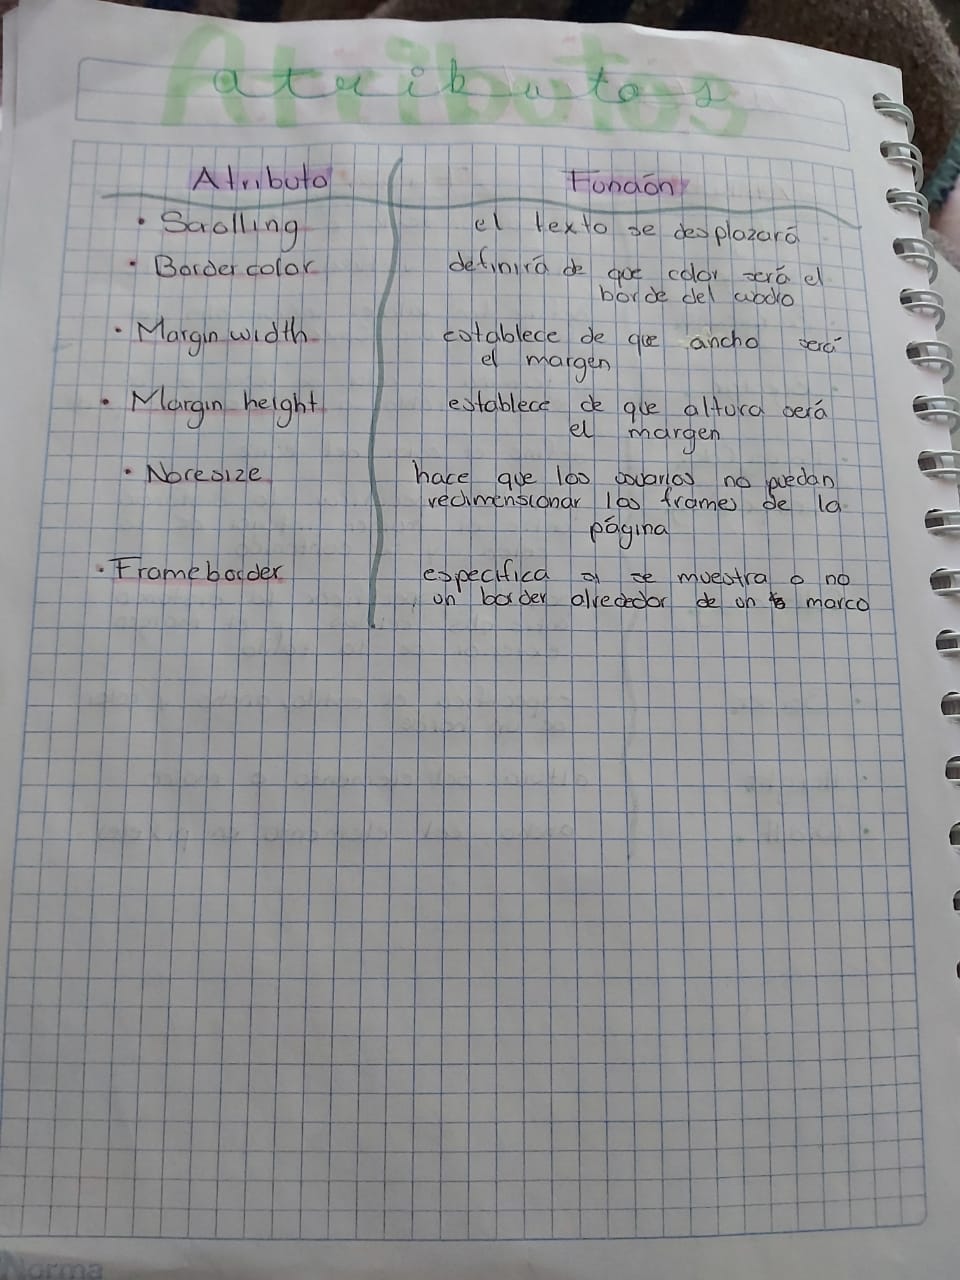 Atributos
atributos
Atributo Función
• Scrolling el texto se desplazará
• Bordercolor definirá de que color será el
borde del cuadro
• Margin width establece de que ancho será
el margen
• Margin height establece de que altura será
el margen
• Noresize hace que los usuarios no puedan
redimensionar los frames de la
página
• Frameborder especifica si se muestra o no
un border alrededor de un marco
Norma